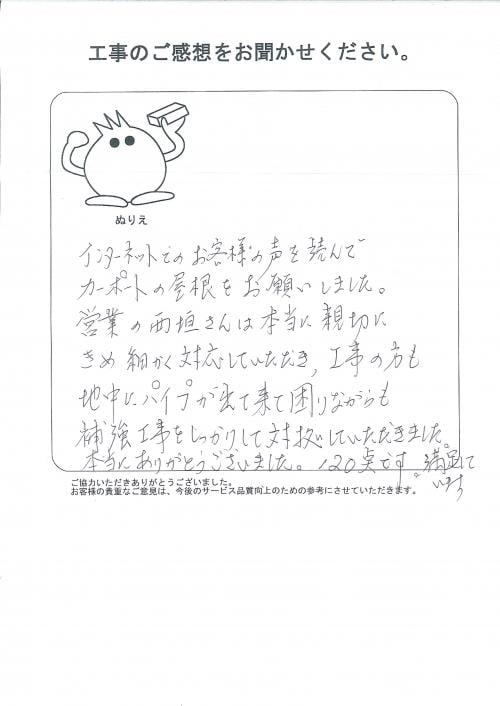 工事のご感想をお聞かせください。
ぬりえ
インターネットでのお客様の声を読んで
カーポートの屋根をお願いしました。
営業の西垣さんは本当に親切に
きめ細かく対応していただき、工事の方も
地中にパイプが出て来て困りながらも
補強工事をしっかりして対拠していただきました。
本当にありがとうございました。120点です。満足して
います
ご協力いただきありがとうございました。
お客様の貴重なご意見は、今後のサービス品質向上のための参考にさせていただきます。